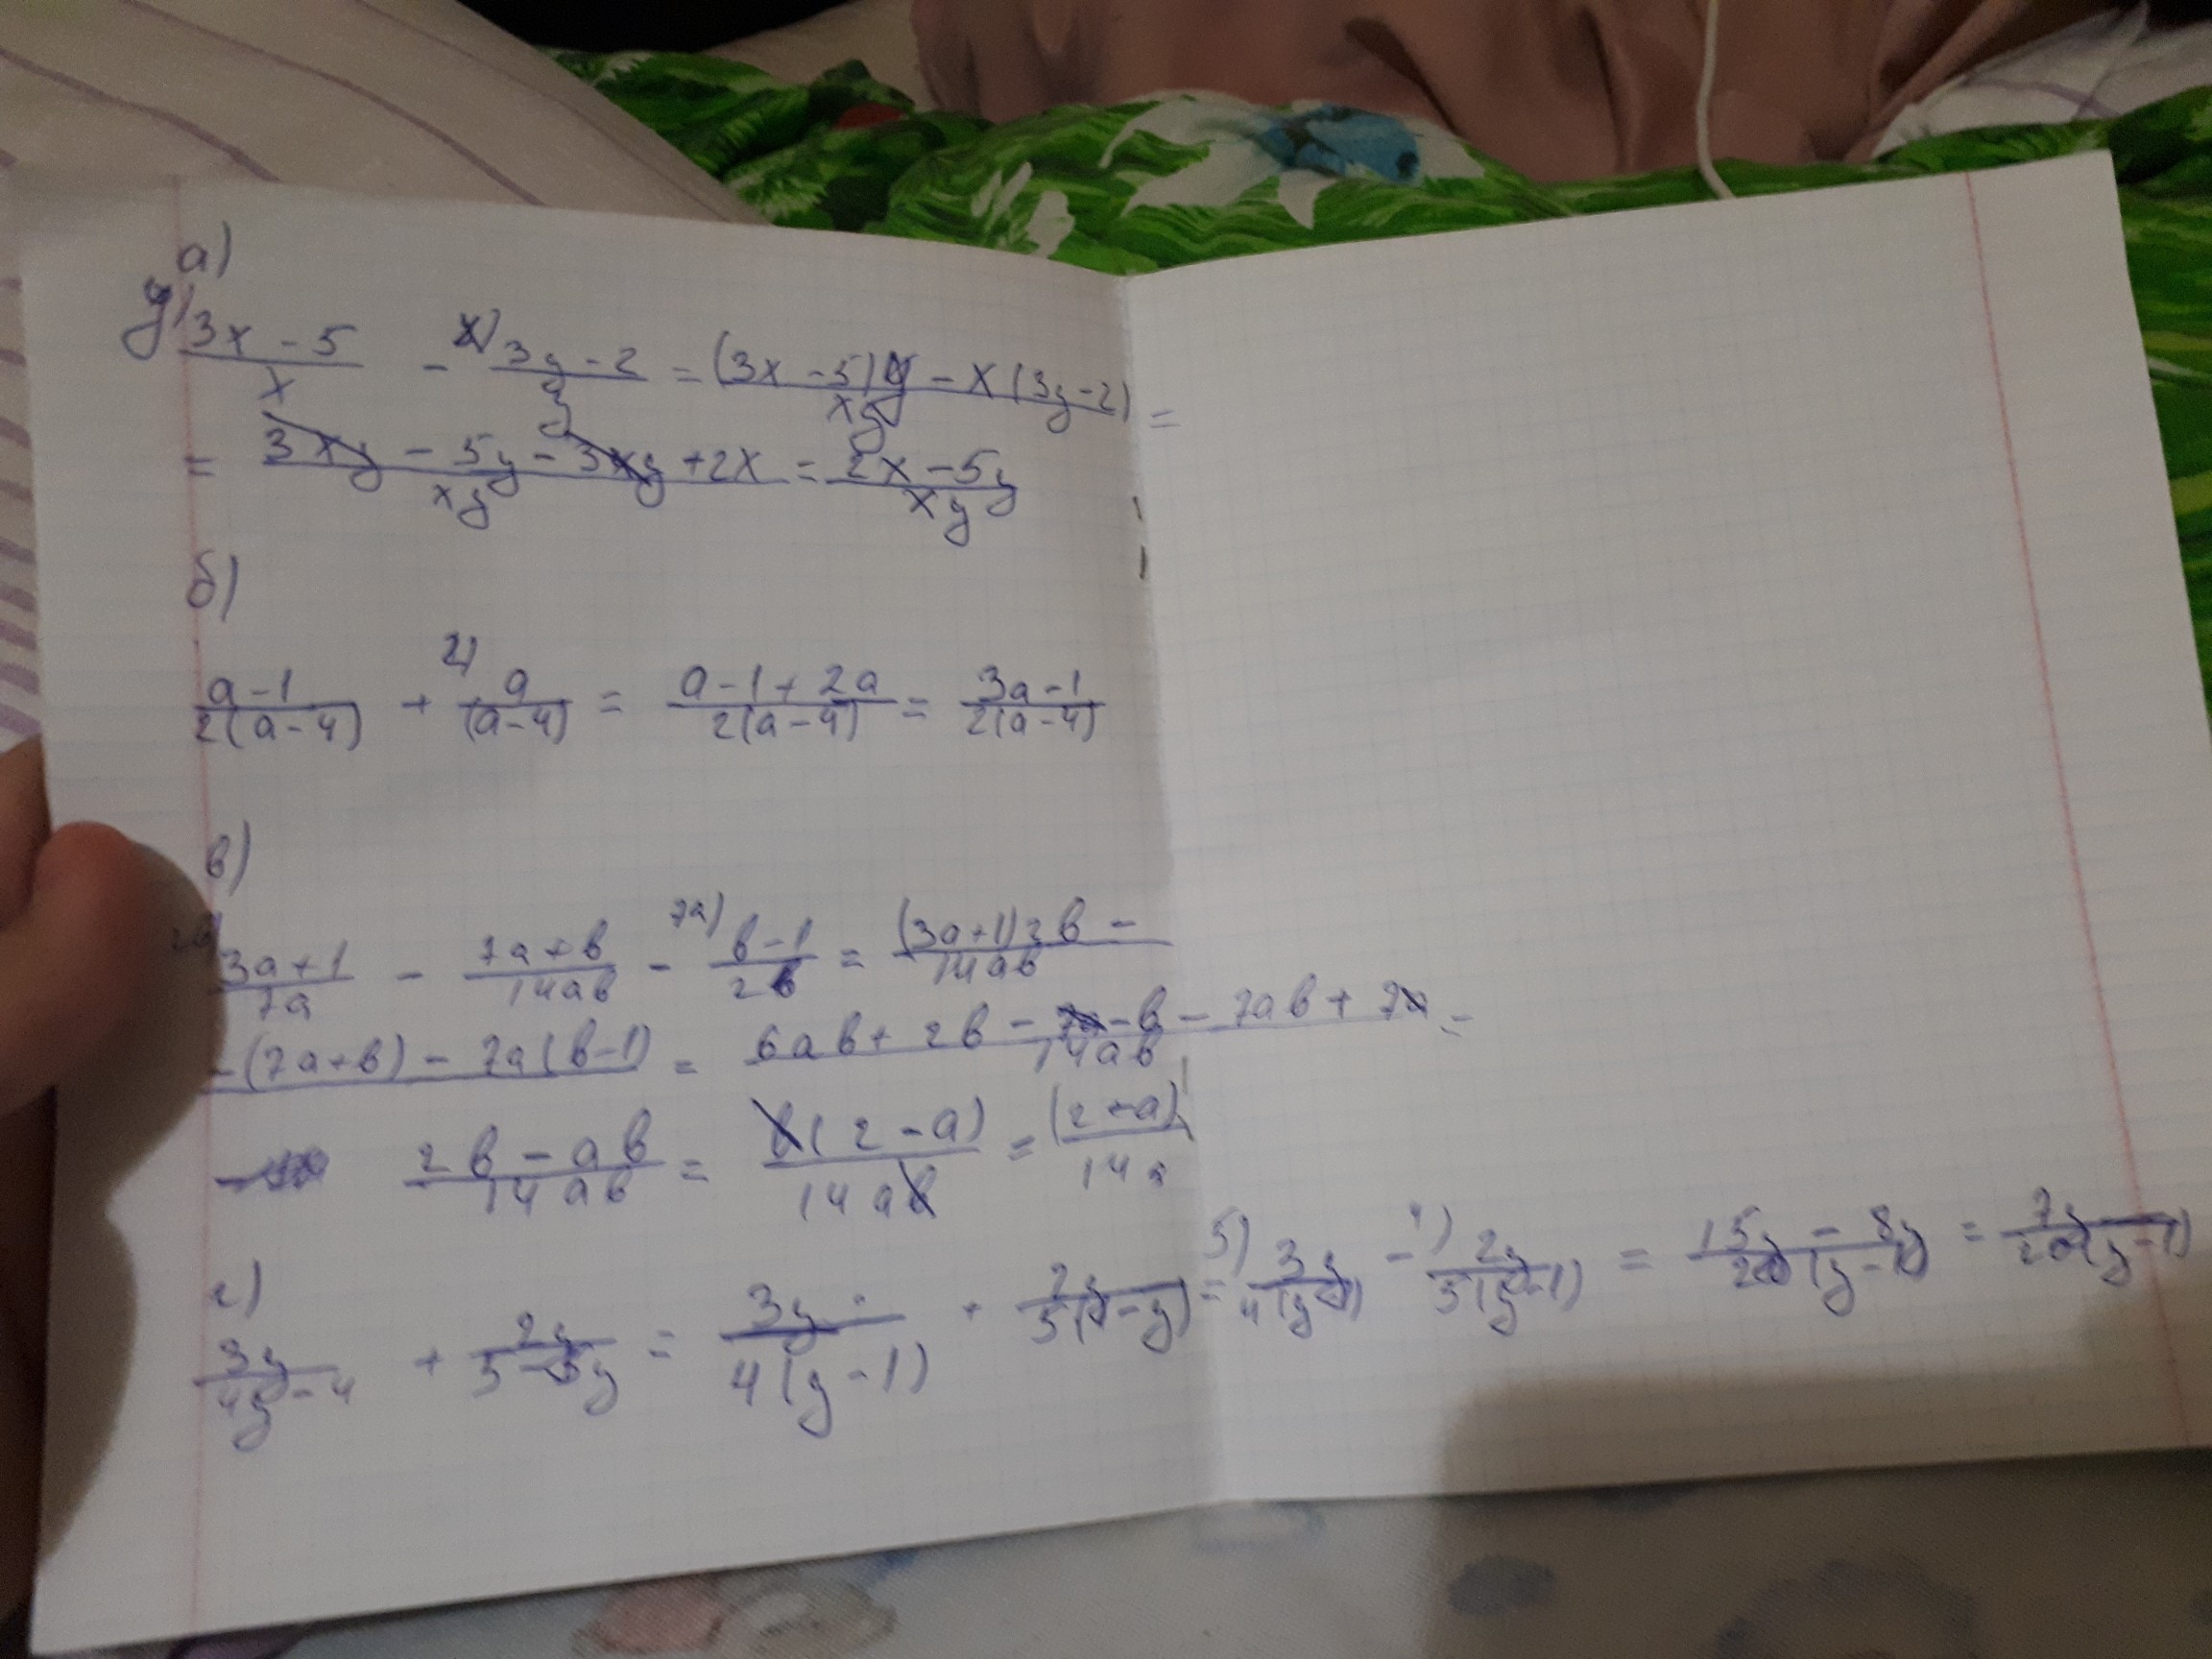 а)
y) (3x - 5)/x - x) (3y - 2)/y = ((3x - 5)y - x(3y - 2))/xy =
= (3xy - 5y - 3xy + 2x)/xy = (2x - 5y)/xy
б)
(a - 1)/2(a - 4) + 2) a/(a - 4) = (a - 1 + 2a)/2(a - 4) = (3a - 1)/2(a - 4)
в)
(3a + 1)/7a - (7a + b)/14ab - 7a) (b - 1)/2b = (3a + 1)2b - /14ab
- (7a + b) - 7a(b - 1) = (6ab + 2b - 7a - b - 7ab + 7a)/14ab =
(2b - ab)/14ab = b(2 - a)/14ab = (2 - a)/14a
г)
3y/(4y - 4) + 2y/(5 - 5y) = 3y/4(y - 1) + 2y/5(1 - y) = 5) 3y/4(y - 1) - 4) 2y/5(y - 1) = (15y - 8y)/20(y - 1) = 7y/20(y - 1)